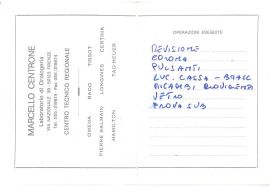 MARCELLO CENTRONE
Laboratorio di Orologeria
VIA NAZIONALE
CENTRO TECNICO REGIONALE
OMEGA RADO TISSOT
PIERRE BALMAIN LONGINES CERTINA
HAMILTON TAG-HEUER
OPERAZIONI ESEGUITE
REVISIONE
CORONA
PULSANTI
LUC. CASSA - BRACC
RICAMBI MOVIMENTO
VETRO
PROVA SUB